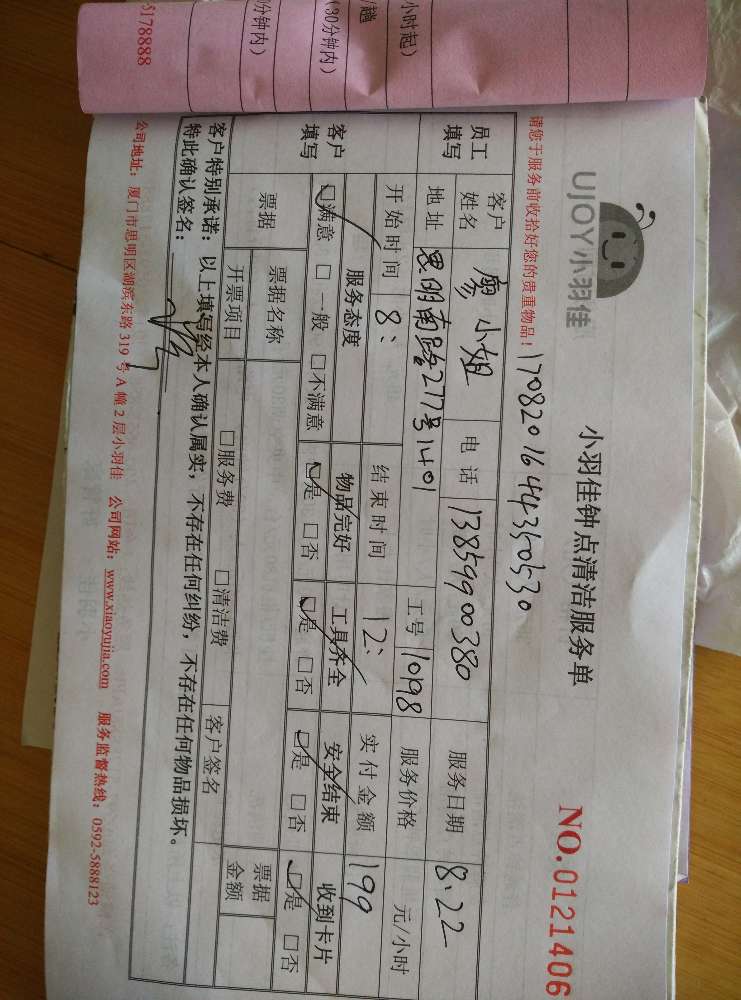 5178888
分钟内)
(30分钟内)
趟
小时起)
UJOY小羽佳
小羽佳钟点清洁服务单
NO.0121406
请您于服务前收拾好您的贵重物品!
1708201644350530
员工填写
客户姓名 廖小姐 电话 13859900380 服务日期 8.22
地址 思明南路277号1401 工号 1098 服务价格 元/小时
开始时间 8: 结束时间 12: 实付金额 199
客户填写
服务态度 物品完好 工具齐全 安全结束 收到卡片
□满意 □一般 □不满意 □是 □否 □是 □否 □是 □否 □是 □否
票据 票据名称 客户签名 票据金额
开票项目 □服务费 □清洁费
客户特别承诺:以上填写经本人确认属实,不存在任何纠纷,不存在任何物品损坏。
特此确认签名:
公司地址:厦门市思明区湖滨东路319号A幢2层小羽佳 公司网站:www.xiaoyujia.com 服务监督热线:0592-5888123